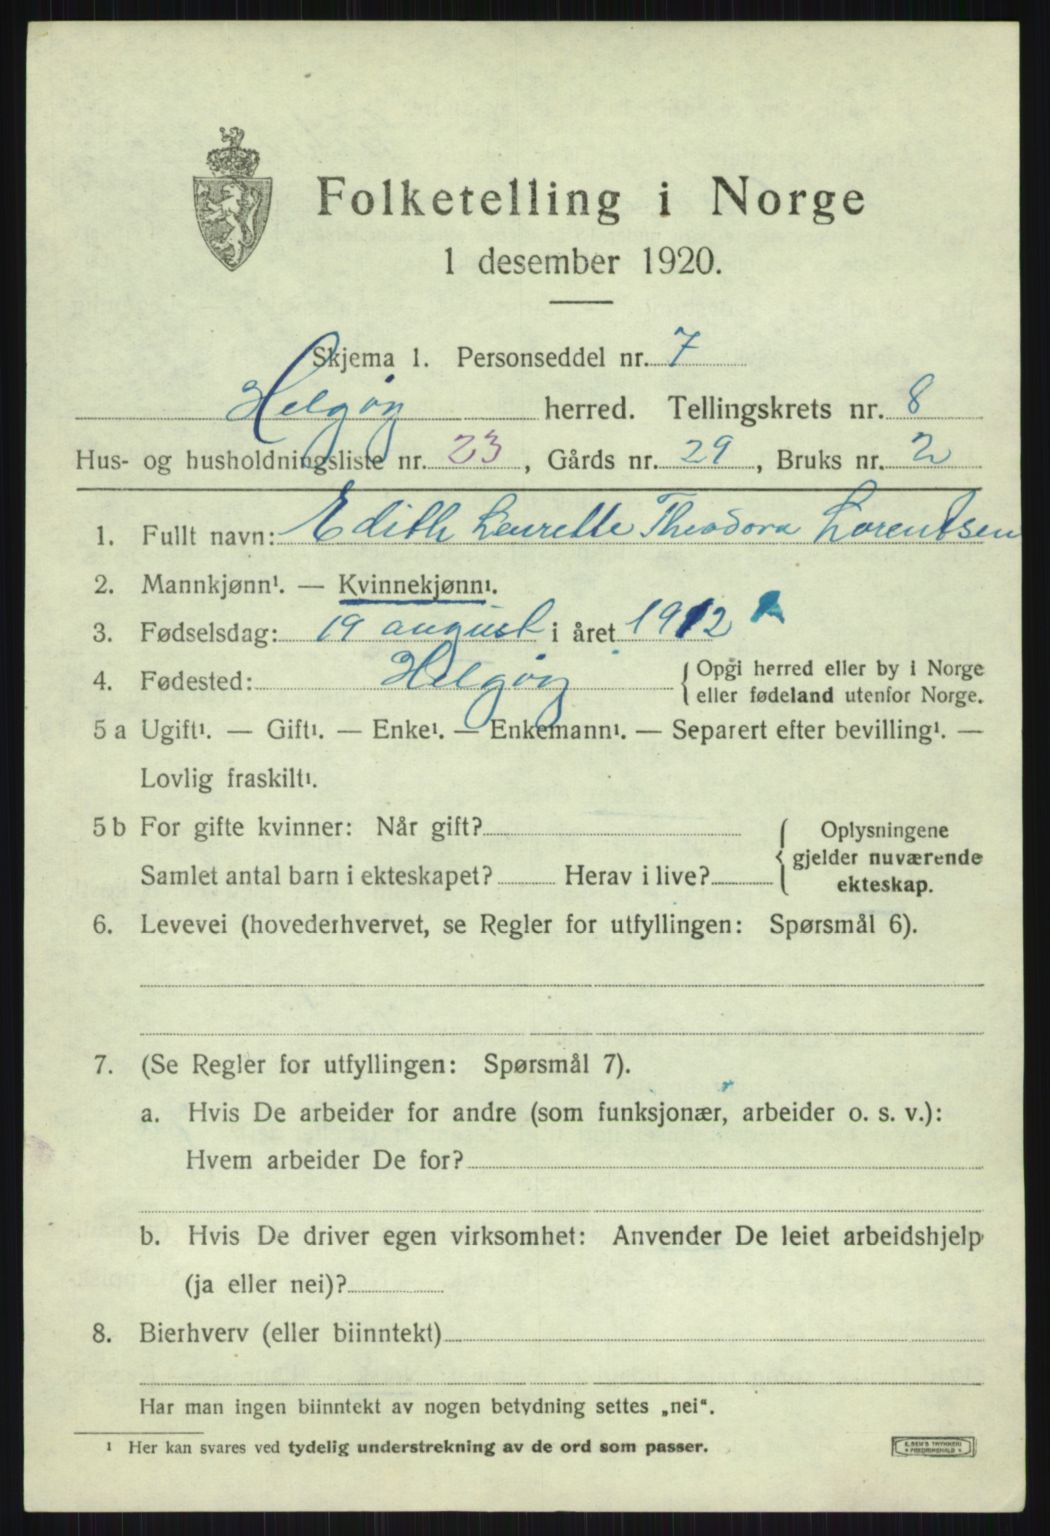 Folketelling i Norge
1 desember 1920.
Skjema 1. Personseddel nr. 7
Helgøy herred. Tellingskrets nr. 8
Hus- og husholdningsliste nr. 23, Gårds nr. 29, Bruks nr. 2
1. Fullt navn: Edith Laurette Theodora Lorentsen
2. Mannkjønn¹. — Kvinnekjønn¹.
3. Fødselsdag: 19 august i året 1912
4. Fødested: Helgøy {Opgi herred eller by i Norge
eller fødeland utenfor Norge.
5 a Ugift¹. — Gift¹. — Enke¹. — Enkemann¹. — Separert efter bevilling¹. —
Lovlig fraskilt¹.
5 b For gifte kvinner: Når gift? { Oplysningene
gjelder nuværende
Samlet antal barn i ekteskapet? Herav i live?
ekteskap.
6. Levevei (hovederhvervet, se Regler for utfyllingen: Spørsmål 6).
7. (Se Regler for utfyllingen: Spørsmål 7).
a. Hvis De arbeider for andre (som funksjonær, arbeider o. s. v.):
Hvem arbeider De for?
b. Hvis De driver egen virksomhet: Anvender De leiet arbeidshjelp
(ja eller nei)?
8. Bierhverv (eller biinntekt)
Har man ingen biinntekt av nogen betydning settes „nei“.
¹ Her kan svares ved tydelig understrekning av de ord som passer.